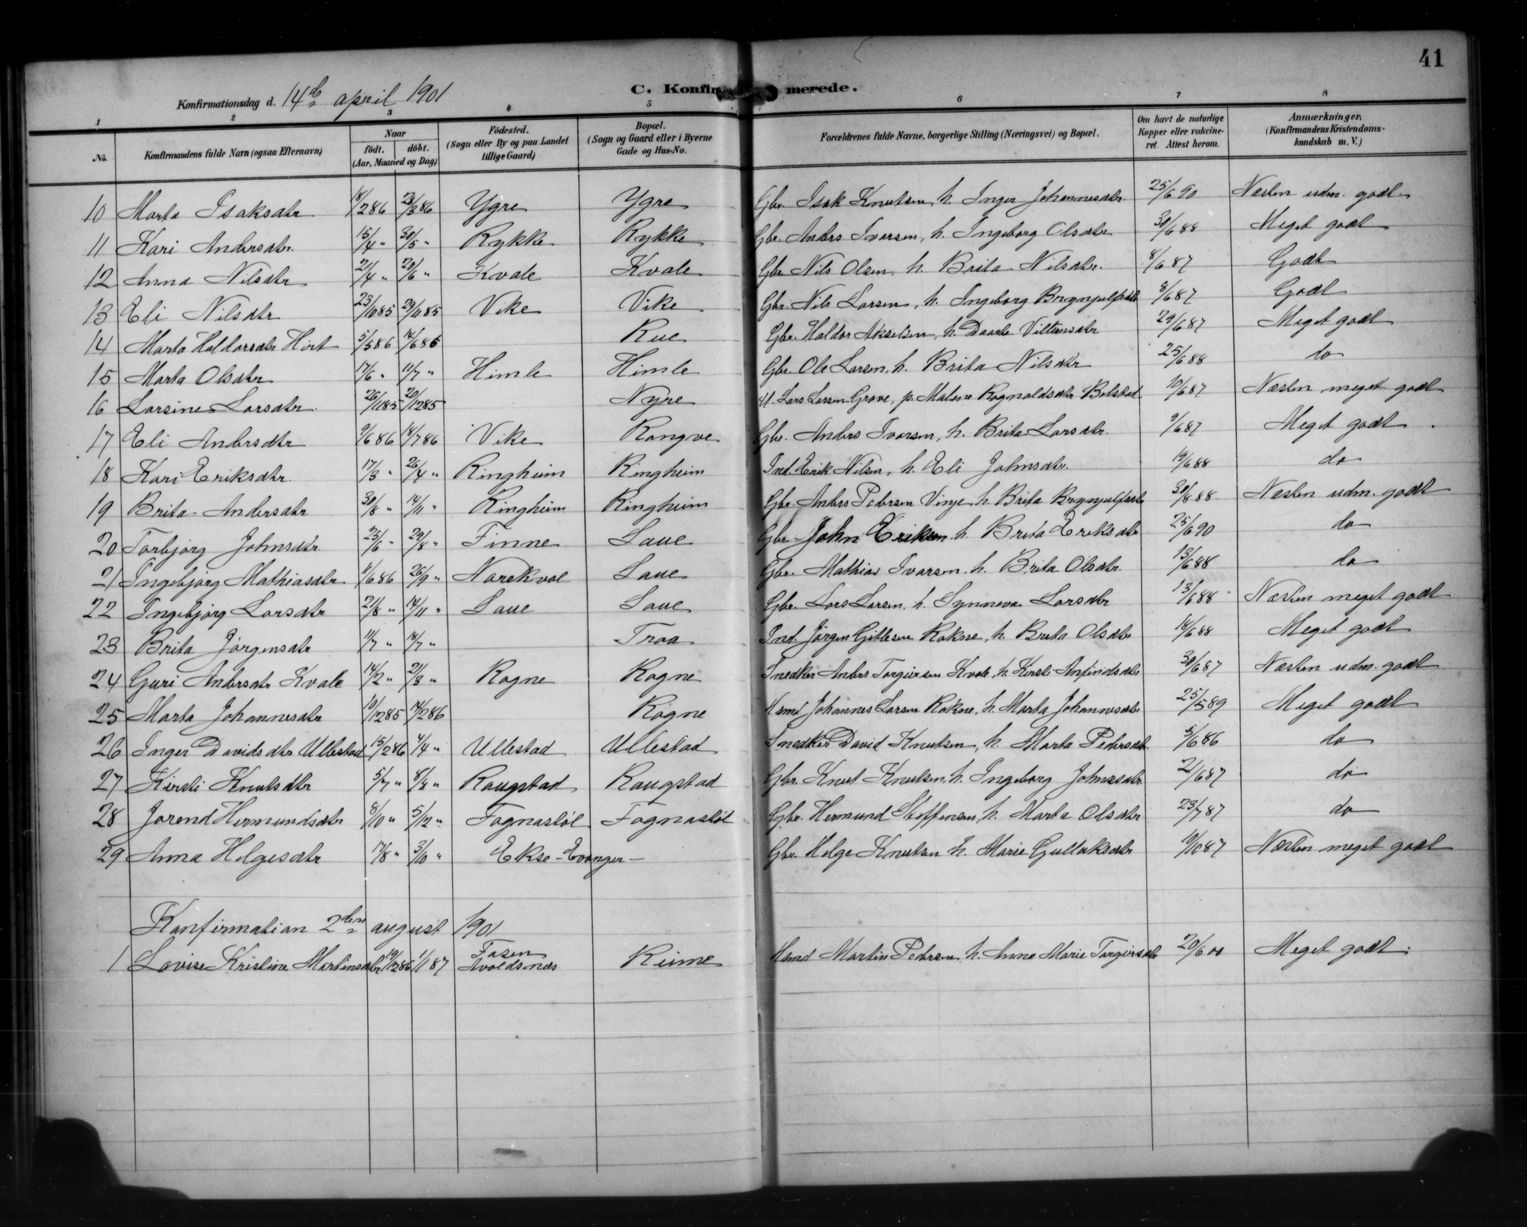 41
C. Konfirmerede.
Konfirmationsdag d. 14de april 1901
1 2 3 4 5 6 7 8
No. Konfirmandens fulde Navn (ogsaa Efternavn) Naar født. døbt. (Aar, Maaned og Dag) Fødested. (Sogn eller By og paa Landet tillige Gaard) Bopæl. (Sogn og Gaard eller i Byerne Gade og Hus-No. Forældrenes fulde Navne, borgerlige Stilling (Næringsvei) og Bopæl. Om havt de naturlige Kopper eller vaccineret. Attest herom. Anmærkninger. (Konfirmandens Kristendomskundskab m. V.)
10 Marta Isaksdtr 286 86 Ygre Ygre Gbr. Isak Knutsen, h. Inger Johannesdtr 25/6 90 Næsten udm. godt
11 Kari Andersdtr 15/4 " 30/5 " Rykke Rykke Gbr. Anders Ivarsen, h. Ingeborg Olsdtr 30/6 88 Meget godt
12 Anna Nilsdtr 21/4 " 20/6 " Kvale Kvale Gbr. Nils Olsen h. Brita Nilsdtr. 87 Godt
13 Eli Nilsdtr 23/10 85 85 Vike Vike Gbr. Nils Larsen, h. Ingeborg Brynjulfsdtr 3/6 87 Godt
14 Marta Haldorsdtr Hirt 5/5 86 14/6 86 Rue Gbr. Haldor Akselsen, h. Daarte 29/6 87 Meget godt
15 Marta Olsdtr 17/6 " 11/7 " Himle Himle Gbr. Ole Larsen, h. Brita Nilsdtr 25/6 88 do
16 Larsine Larsdtr 26/11 85 20/12 85 Nyre Lars Larsen Grove, p. Malene Ragnaldsdtr Bolstad 10/6 87 Næsten meget godt
17 Eli Andersdtr 9/6 86 18/7 86 Vike Rangve Gbr. Anders Ivarsen, h. Brita Larsdtr. 9/6 87 Meget godt
18 Kari Eriksdtr 17/3 " 26/4 " Ringheim Ringheim Ind. Erik Nilsen, h. Eli Johnsdtr. 19/6 88 do
19 Brita Andersdtr 30/8 " 14/11 " Ringheim Ringheim Gbr. Anders Pedersen Vinje h. Brita Brynjulfsdtr 30/8 88 Næsten udm. godt
20 Torbjørg Johnsdtr 23/6 " 29/8 " Finne Saue Gbr John Eriksen h. Brita Eriksdtr 25/6 90 do
21 Ingebjørg Mathiasdtr 6 86 26/9 " Norekval Saue Gbr. Mathias Ivarsen. h. Brita Olsdtr. 13/6 88 do
22 Ingebjørg Larsdtr 21/8 " 14/11 " Saue Saue Gbr. Lars Larsen, h. Synneva Larsdtr 13/6 88 Næsten meget godt
23 Brita Jørgensdtr 7 " 7 " Traa Ind. Jørgen Gittlesen Rokne, h. Brita Olsdtr 18/6 88 Meget godt
24 Guri Andersdtr Kvale 14/2 " 21/3 " Rogne Rogne Snedker Anders Torgiersen Kvale, h. Kirsti Anfindsdtr 30/6 87 Næsten udm. godt
25 Marta Johannesdtr 10/12 85 14/2 86 Rogne Johannes Larsen Rokne, h. Marta Johannesdtr 25/5 89 Meget godt
26 Inger Davidsdtr Ullestad 15/2 86 4/4 " Ullestad Ullestad Snedker David Knutsen, h. Marta Pedersdtr 5/6 86 do
27 Kirsti Knutsdtr 5/7 " 8/8 " Raugstad Raugstad Gbr. Knut Knutsen, h. Ingeborg Johnsdtr 21/6 87 do
28 Jorend Hermundsdtr 8/10 " 5/12 " Fognastøl Fognastøl Gbr. Hermund Steffensen, h. Marta Olsdtr 23/7 87 do
29 Anna Helgesdtr 17/8 " 3/10 " Ekse - Evanger - Gbr. Helge Knutsen h. Marie Gullaksdtr 19/10 87 Næsten meget godt
Konfirmation 2den august 1901
1 Lovise Kristine Martinsdtr 12 86 1/1 87 Fosen Avoldsnes Reime Hand. Martin Pedersen, h. Anna Marie Torgiersdtr 20/6 00 Meget godt.